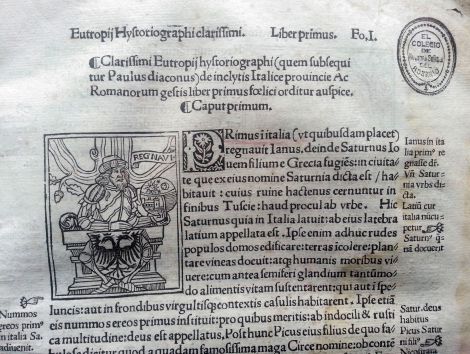 Eutropij Hystoriographi clarissimi. Liber primus. Fo. I.
EL
COLEGIO
DE
ROSARIO
¶Clarissimi Eutropij hystoriographi (quem subsequi
tur Paulus diaconus) de inclytis Italice prouincie Ac
Romanorum gestis liber primus fœlici orditur auspice.
¶Caput primum.
REGNAVI
PRimus ĩ italia (vt quibusdam placet)
regnauit Ianus, deinde Saturnus Io
uem filium e Grecia fugiẽs: in ciuita
te que ex eius nomine Saturnia dicta est / ha
bitauit: cuius ruine hactenus cernuntur in
finibus Tuscie: haud procul ab vrbe. Hic
Saturnus quia in Italia latuit: ab eius latebra
latium appellata est. Ipse enim adhuc rudes
populos domos edificare: terras icolere: plan
tare vineas docuit: atq; humanis moribus vi
uere: cum antea semiferi glandium tantũmo
do alimentis vitam sustentant: qui aut ĩ spe
luncis: aut in frondibus virgultisq; contextis casulis habitarent. Ipse etiã
eis nummos ereos primus instituit: pro quibus meritis: ab indocili & rusti
ca multitudine: deus est appellatus, Post hunc Picus eius filius de quo fa
bule a quadam famosissima maga Circe nomine: ob contẽ
Ianus in ita
lia primꝰ re
gnasse dr.
Vñ Satur
nia vrbs di
cta.
Latiũ cur
italia nũcu
petur
Saturnꝰ q̃
nã docuerit
Nummos
ereos primꝰ
in italia Sa
adinuenit.
Satur. deus
habitus
Picus Satur
ni